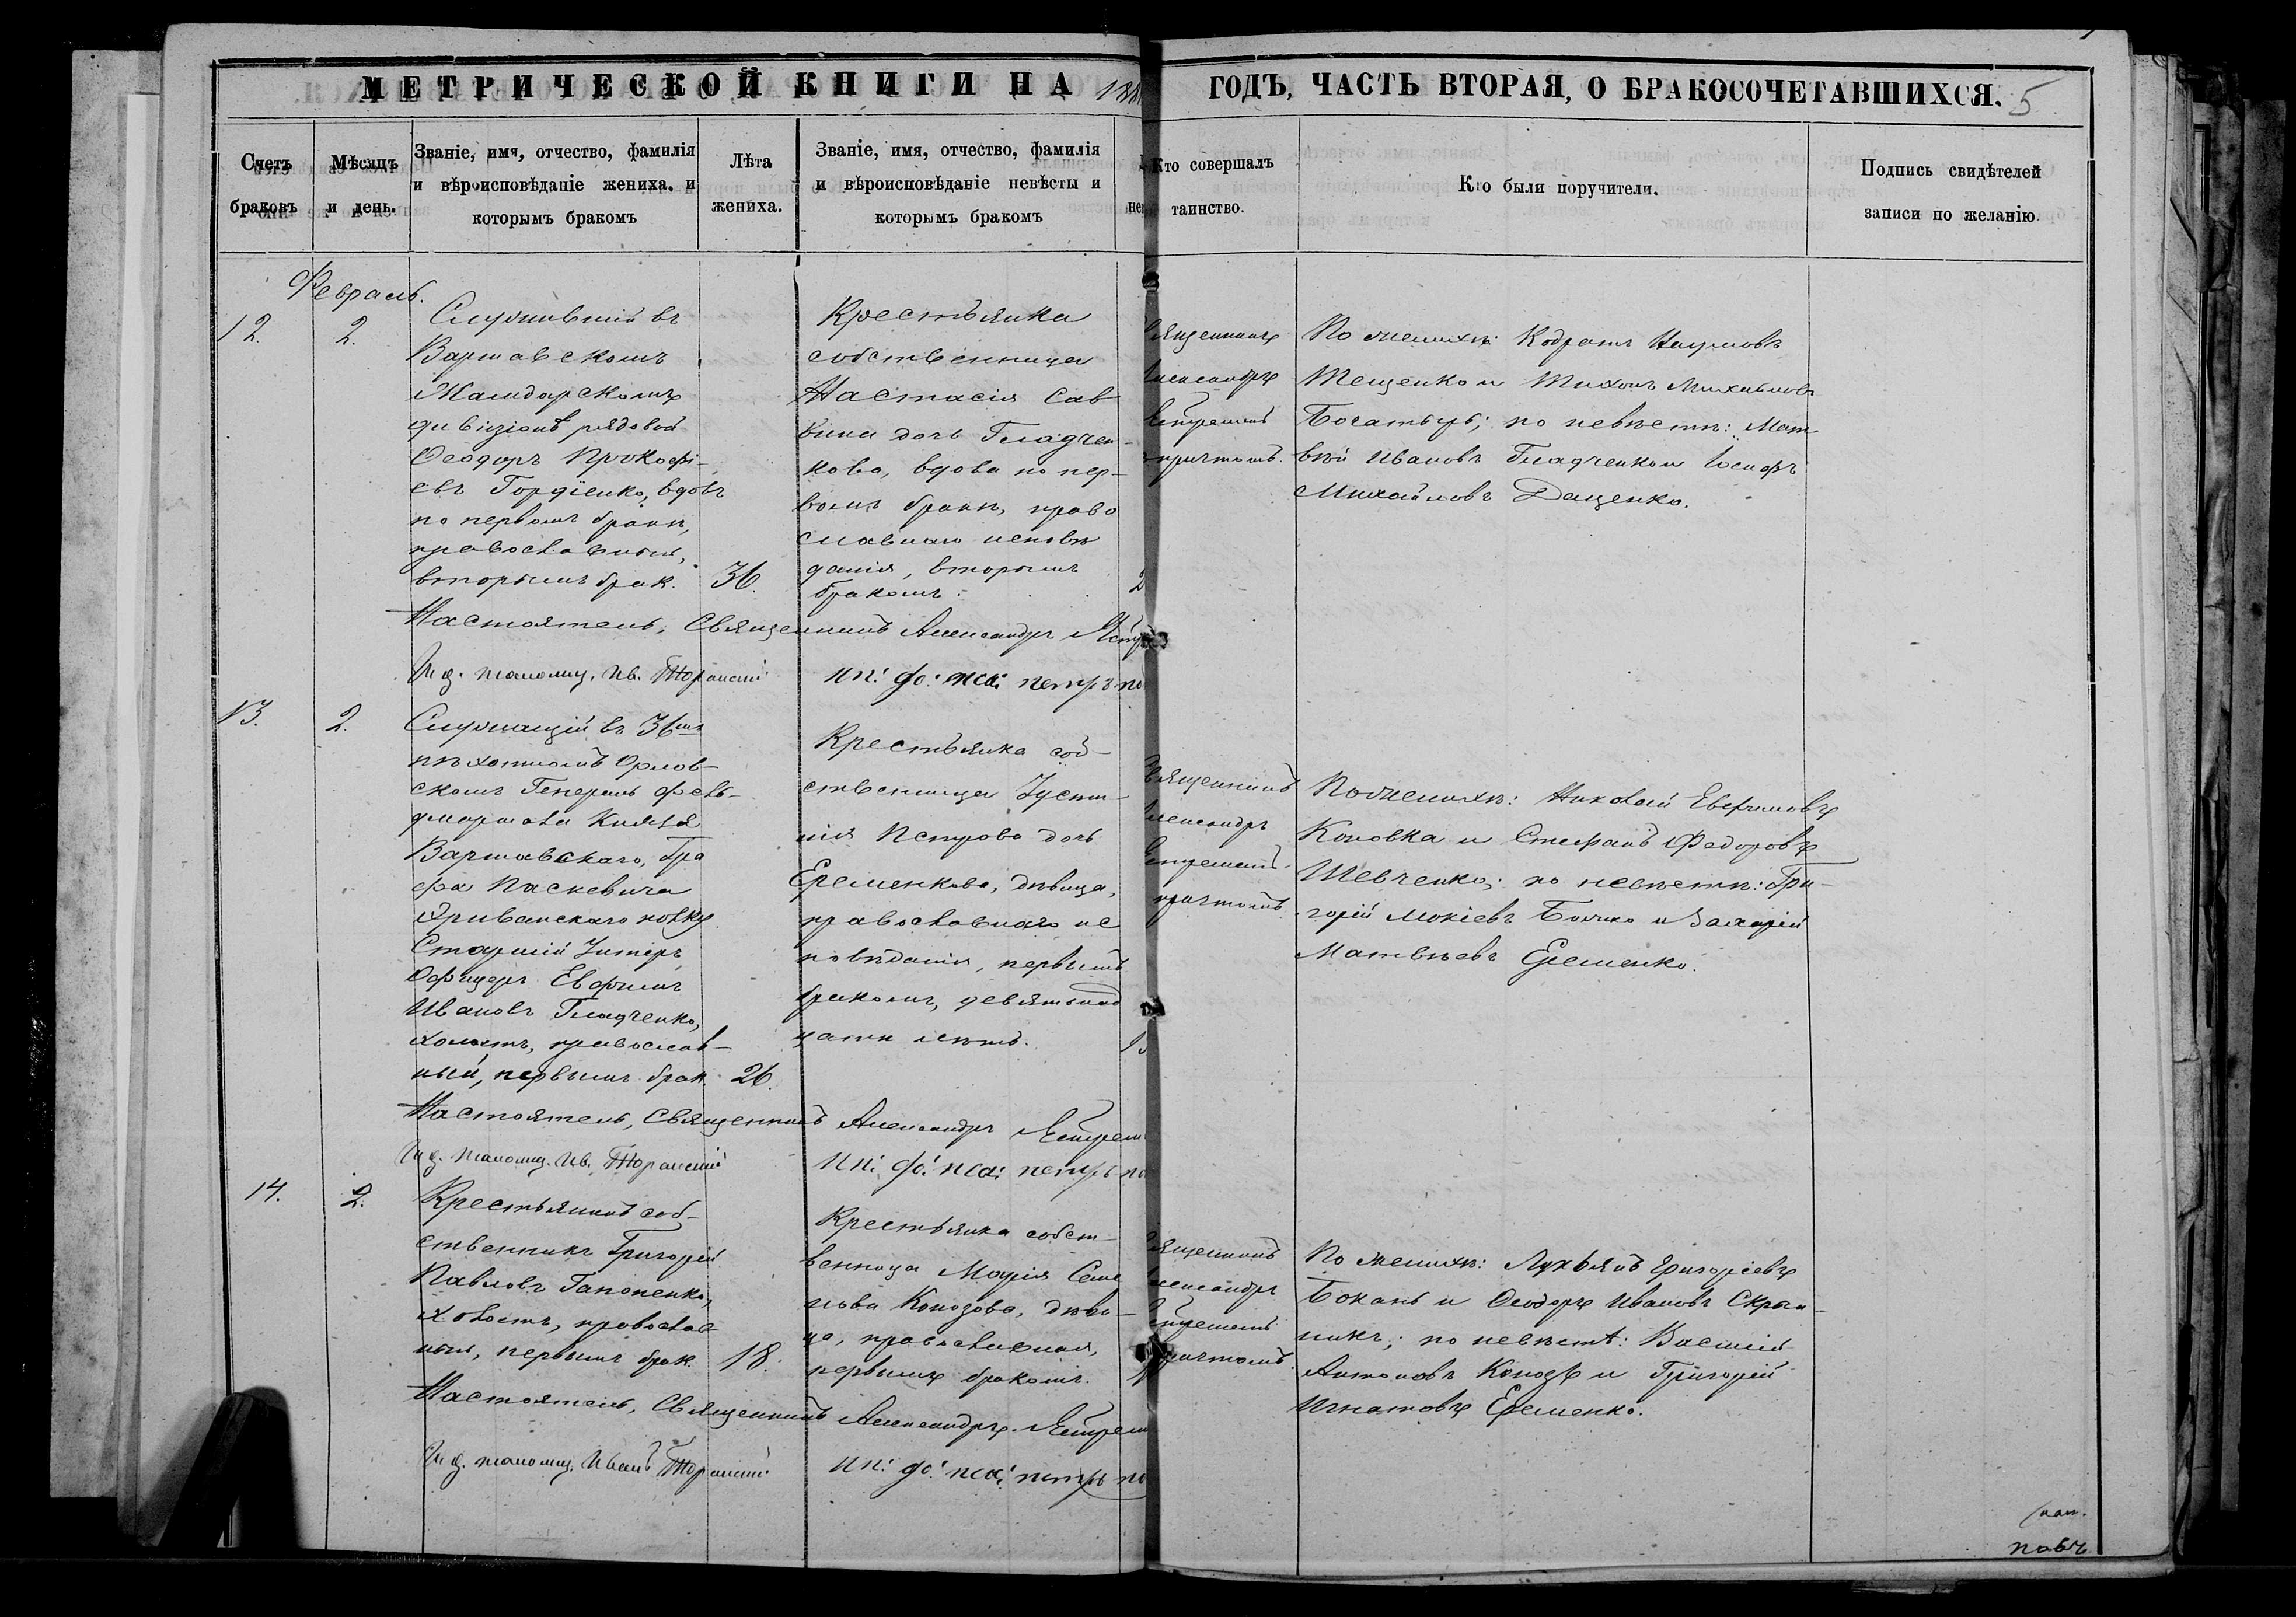 МЕТРИЧЕСКОЙ КНИГИ НА 188
ГОДЪ, ЧАСТЬ ВТОРАЯ, О БРАКОСОЧЕТАВШИХСЯ. 5
Счетъ браковъ
Мѣсяцъ и день.
Званіе, имя, отчество, фамилія
и вѣроисповѣданіе жениха, и
которымъ бракомъ
Лѣта
жениха.
Званіе, имя, отчество, фамилія
и вѣроисповѣданіе невѣсты и
которымъ бракомъ
Кто совершалъ
таинство.
Кто были поручители.
Подпись свидѣтелей
записи по желанію.
Февраль.
12.
2.
Служившій въ
Варшавскомъ
Жандарскомъ
дивизіонѣ рядовой
Ѳеодоръ Прокофі-
евъ Гордіенко, вдовъ
по первомъ бракѣ,
православный,
вторымъ брак.
36.
Крестьянка
собственница
Настасія Сав
вина дочь Гладчен-
кова, вдова по пер-
вомъ бракѣ, право
славнаго исповѣ
данія, вторымъ
бракомъ.
2
Священникъ
Александръ
причтомъ.
По женихѣ: Кодратъ Наумовъ
Тещенко и Тихонъ Михайловъ
Богатырь; по невѣстѣ: Мат
вѣй Ивановъ Гладченко и Іосифъ
Михайловъ Даценко.
Настоятель, Священникъ Александръ
И. д. псаломщ. Ив.
ип: до: пса: петръ по
13.
2.
Служащій въ 36мъ
пѣхотномъ Орлов-
скомъ Генералъ Фель-
дмаршала Князя
Варшавскаго, Гра
фа Паскевича
Эриванскаго полку
Старшій Унтеръ
Офицеръ Евфимъ
Ивановъ Гладченко,
холостъ, православ-
ный, первымъ брак.
26.
Крестьянка соб-
ственница Усти-
нія Петрова дочь
Еременкова, дѣвица,
православнаго ис
повѣданія, первымъ
бракомъ, девятнад
цати лѣтъ.
1
Священникъ
Александръ
причтомъ.
По женихѣ: Николай Евфимовъ
Коновка и Стефанъ Федоровъ
Шевченко; по невѣстѣ: Гри-
горій Мокіевъ и Захарій
Матвѣевъ Еременко.
Настоятель, Священникъ Александръ
И д. псаломщ. Ив.
ип: до: пса: петръ по
14.
2.
Крестьянинъ соб-
ственникъ Григорій
Павловъ Гапоненко,
холостъ, православ
ный, первымъ брак.
18.
Крестьянка собст-
венница Марія Семе
нова Конозова, дѣви-
ца, православная,
первымъ бракомъ.
Священникъ
Александръ
причтомъ.
По женихѣ: Лукьянъ Григоріевъ
Бокань и Ѳеодоръ Ивановъ Скрып-
никъ; по невѣстѣ: Василій
Антоновъ Конозъ и Григорій
Игнатовъ Еременко.
Настоятель, Священникъ Александръ
И. д. псаломщ. Иванъ
ип: до: пса: петръ по